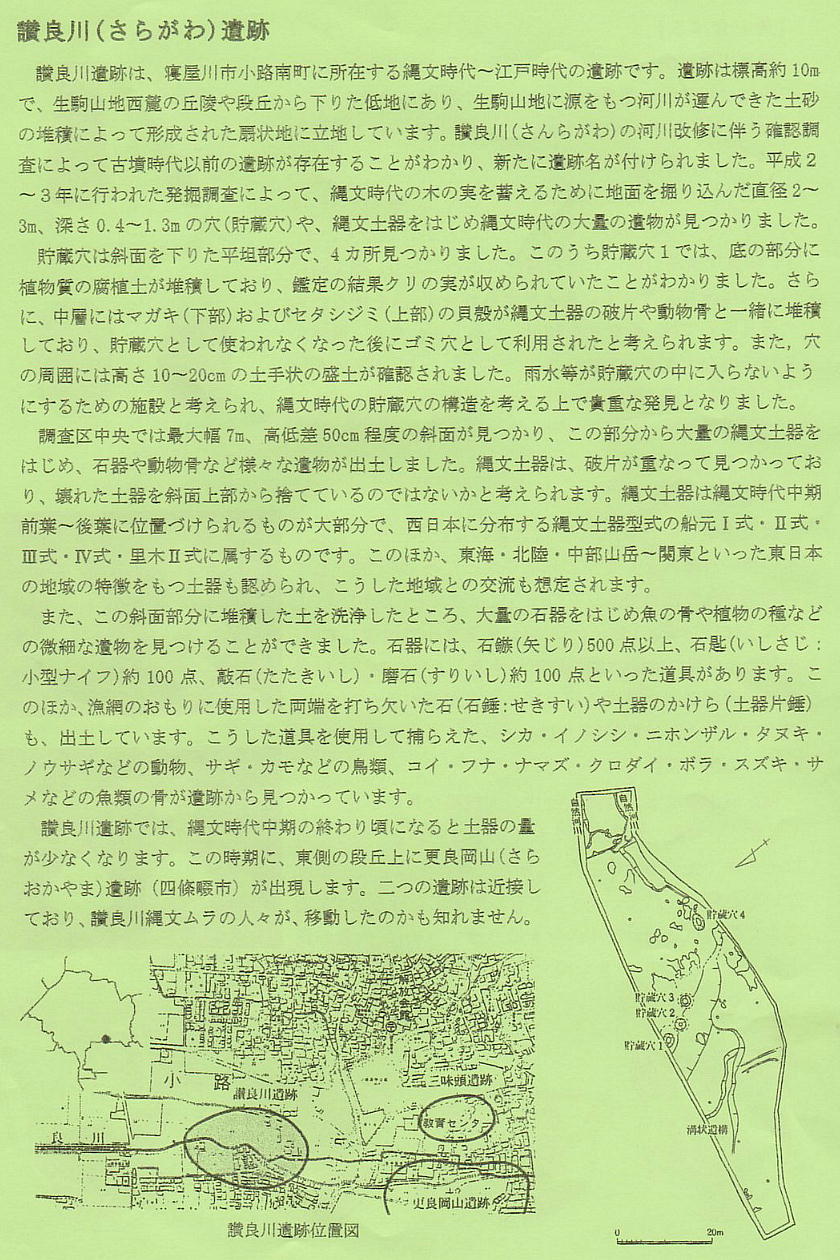 讃良川(さらがわ)遺跡
讃良川遺跡は、寝屋川市小路南町に所在する縄文時代～江戸時代の遺跡です。遺跡は標高約10m
で、生駒山地西麓の丘陵や段丘から下りた低地にあり、生駒山地に源をもつ河川が運んできた土砂
の堆積によって形成された扇状地に立地しています。讃良川(さんらがわ)の河川改修に伴う確認調
査によって古墳時代以前の遺跡が存在することがわかり、新たに遺跡名が付けられました。平成２
～３年に行われた発掘調査によって、縄文時代の木の実を蓄えるために地面を掘り込んだ直径2～
3m、深さ0.4～1.3mの穴(貯蔵穴)や、縄文土器をはじめ縄文時代の大量の遺物が見つかりました。
貯蔵穴は斜面を下りた平坦部分で、４カ所見つかりました。このうち貯蔵穴１では、底の部分に
植物質の腐植土が堆積しており、鑑定の結果クリの実が収められていたことがわかりました。さら
に、中層にはマガキ(下部)およびセタシジミ(上部)の貝殻が縄文土器の破片や動物骨と一緒に堆積
しており、貯蔵穴として使われなくなった後にゴミ穴として利用されたと考えられます。また，穴
の周囲には高さ10～20cmの土手状の盛土が確認されました。雨水等が貯蔵穴の中に入らないよう
にするための施設と考えられ、縄文時代の貯蔵穴の構造を考える上で貴重な発見となりました。
調査区中央では最大幅7m、高低差50cm程度の斜面が見つかり、この部分から大量の縄文土器を
はじめ、石器や動物骨など様々な遺物が出土しました。縄文土器は、破片が重なって見つかってお
り、壊れた土器を斜面上部から捨てているのではないかと考えられます。縄文土器は縄文時代中期
前葉～後葉に位置づけられるものが大部分で、西日本に分布する縄文土器型式の船元Ⅰ式・Ⅱ式・
Ⅲ式・Ⅳ式・里木Ⅱ式に属するものです。このほか、東海・北陸・中部山岳～関東といった東日本
の地域の特徴をもつ土器も認められ、こうした地域との交流も想定されます。
また、この斜面部分に堆積した土を洗浄したところ、大量の石器をはじめ魚の骨や植物の種など
の微細な遺物を見つけることができました。石器には、石鏃(矢じり)500点以上、石匙(いしさじ：
小型ナイフ)約100点、敲石(たたきいし)・磨石(すりいし)約100点といった道具があります。こ
のほか、漁網のおもりに使用した両端を打ち欠いた石(石錘：せきすい)や土器のかけら(土器片錘)
も、出土しています。こうした道具を使用して捕らえた、シカ・イノシシ・ニホンザル・タヌキ・
ノウサギなどの動物、サギ・カモなどの鳥類、コイ・フナ・ナマズ・クロダイ・ボラ・スズキ・サ
メなどの魚類の骨が遺跡から見つかっています。
讃良川遺跡では、縄文時代中期の終わり頃になると土器の量
が少なくなります。この時期に、東側の段丘上に更良岡山(さら
おかやま)遺跡（四條畷市）が出現します。二つの遺跡は近接し
ており、讃良川縄文ムラの人々が、移動したのかも知れません。
自然河川
自然河川
貯蔵穴4
貯蔵穴3
貯蔵穴2
貯蔵穴1
溝状遺構
0 20m
小路
讃良川遺跡
三味頭遺跡
教育センター
良川
更良岡山遺跡
讃良川遺跡位置図